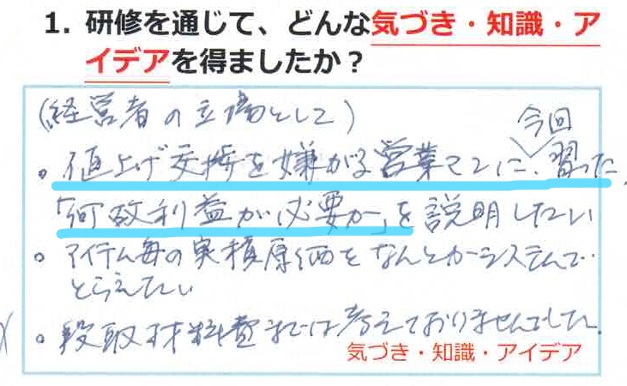 1. 研修を通じて、どんな気づき・知識・ア
イデアを得ましたか？
(経営者の立場として)
今回
。値上げ交渉を嫌がる営業マンに、習った、
「何故利益が必要か」を説明したい
。アイテム毎の実積原価をなんとかシステムで
とらえたい
。段取材料費までは考えておりませんでした。
気づき・知識・アイデア